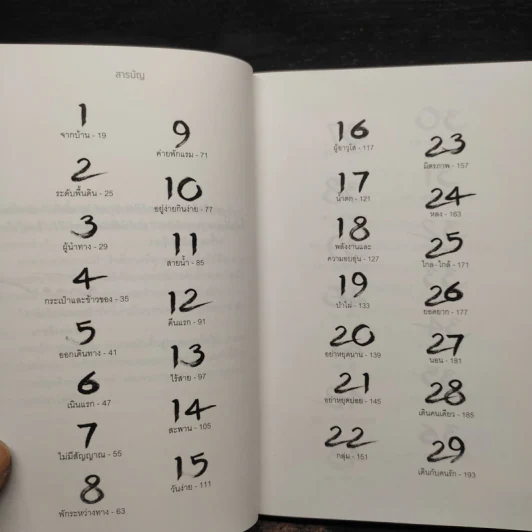 สารบัญ
1
จากบ้าน - 19
2
ระดับพื้นดิน - 25
3
ผู้นำทาง - 29
4
กระเป๋าและข้าวของ - 35
5
ออกเดินทาง - 41
6
เนินแรก - 47
7
ไม่มีสัญญาณ - 55
8
พักระหว่างทาง - 63
9
ค่ายพักแรม - 71
10
อยู่ง่ายกินง่าย - 77
11
สายน้ำ - 85
12
คืนแรก - 91
13
ไร้สาย - 97
14
สะพาน - 105
15
วันง่าย - 111
16
ผู้อาวุโส - 117
17
น้ำตก - 121
18
พลังงานและ
ความอบอุ่น - 127
19
ป่าไผ่ - 133
20
อย่าหยุดนาน - 139
21
อย่าหยุดบ่อย - 145
22
กลุ่ม - 151
23
มิตรภาพ - 157
24
หลง - 163
25
ไกล-ใกล้ - 171
26
ยอดยาก - 177
27
นอน - 181
28
เดินคนเดียว - 185
29
เดินกับคนรัก - 193